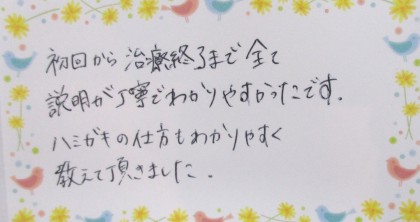 初回から治療終了まで全て
説明が丁寧でわかりやすかったです.
ハミガキの仕方もわかりやすく
教えて頂きました.